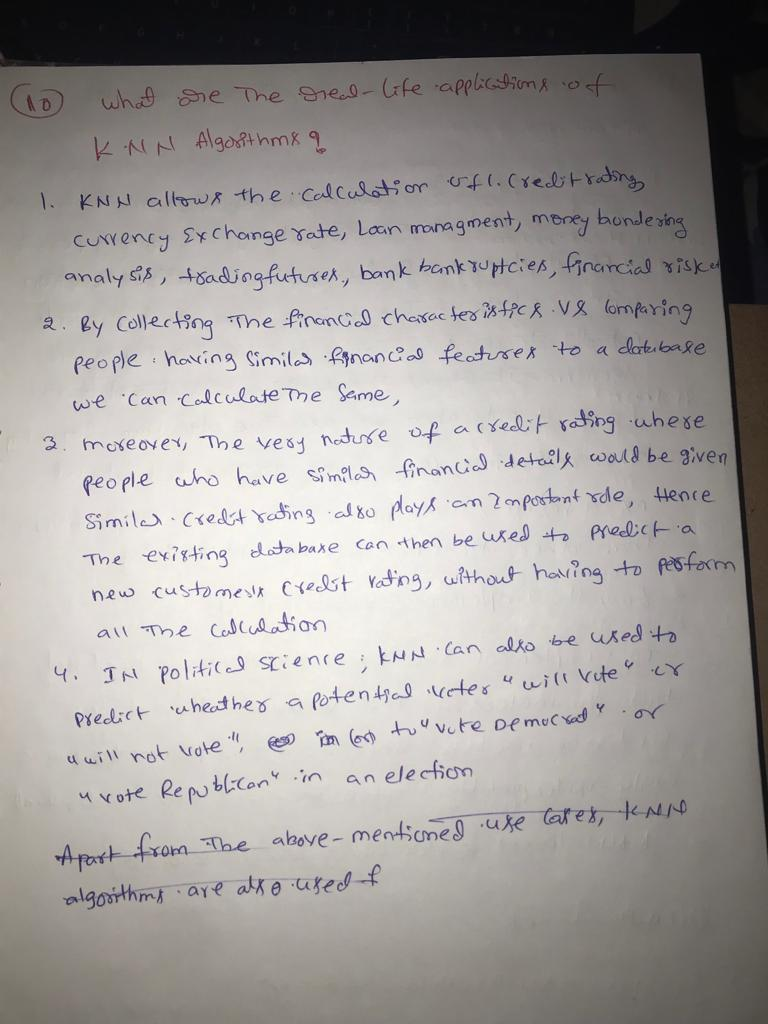 10 What are The real-life applications of
KNN Algorithms?
1. KNN allows the calculation of 1. Credit rating
currency Exchange rate, Loan managment, money bundering
analysis, trading futures, bank bankruptcies, financial risk
2. By Collecting The financial characteristics Vs Comparing
people having Similar financial features to a database
we can calculate The Same,
3. moreover, The very nature of a credit rating where
people who have similar financial details would be given
Similar Credit rating also plays an Important role, Hence
The existing database can then be used to predict a
new customer's Credit rating, without having to perform
all The Calculation
4. IN political Science; KNN can also be used to
predict wheather a potential voter "will Vote" or
"will not vote", (or) to "vote Democrat" or
"vote Republican" in an election
Apart from The above-mentioned use Cases, KNN
algorithms are also used f